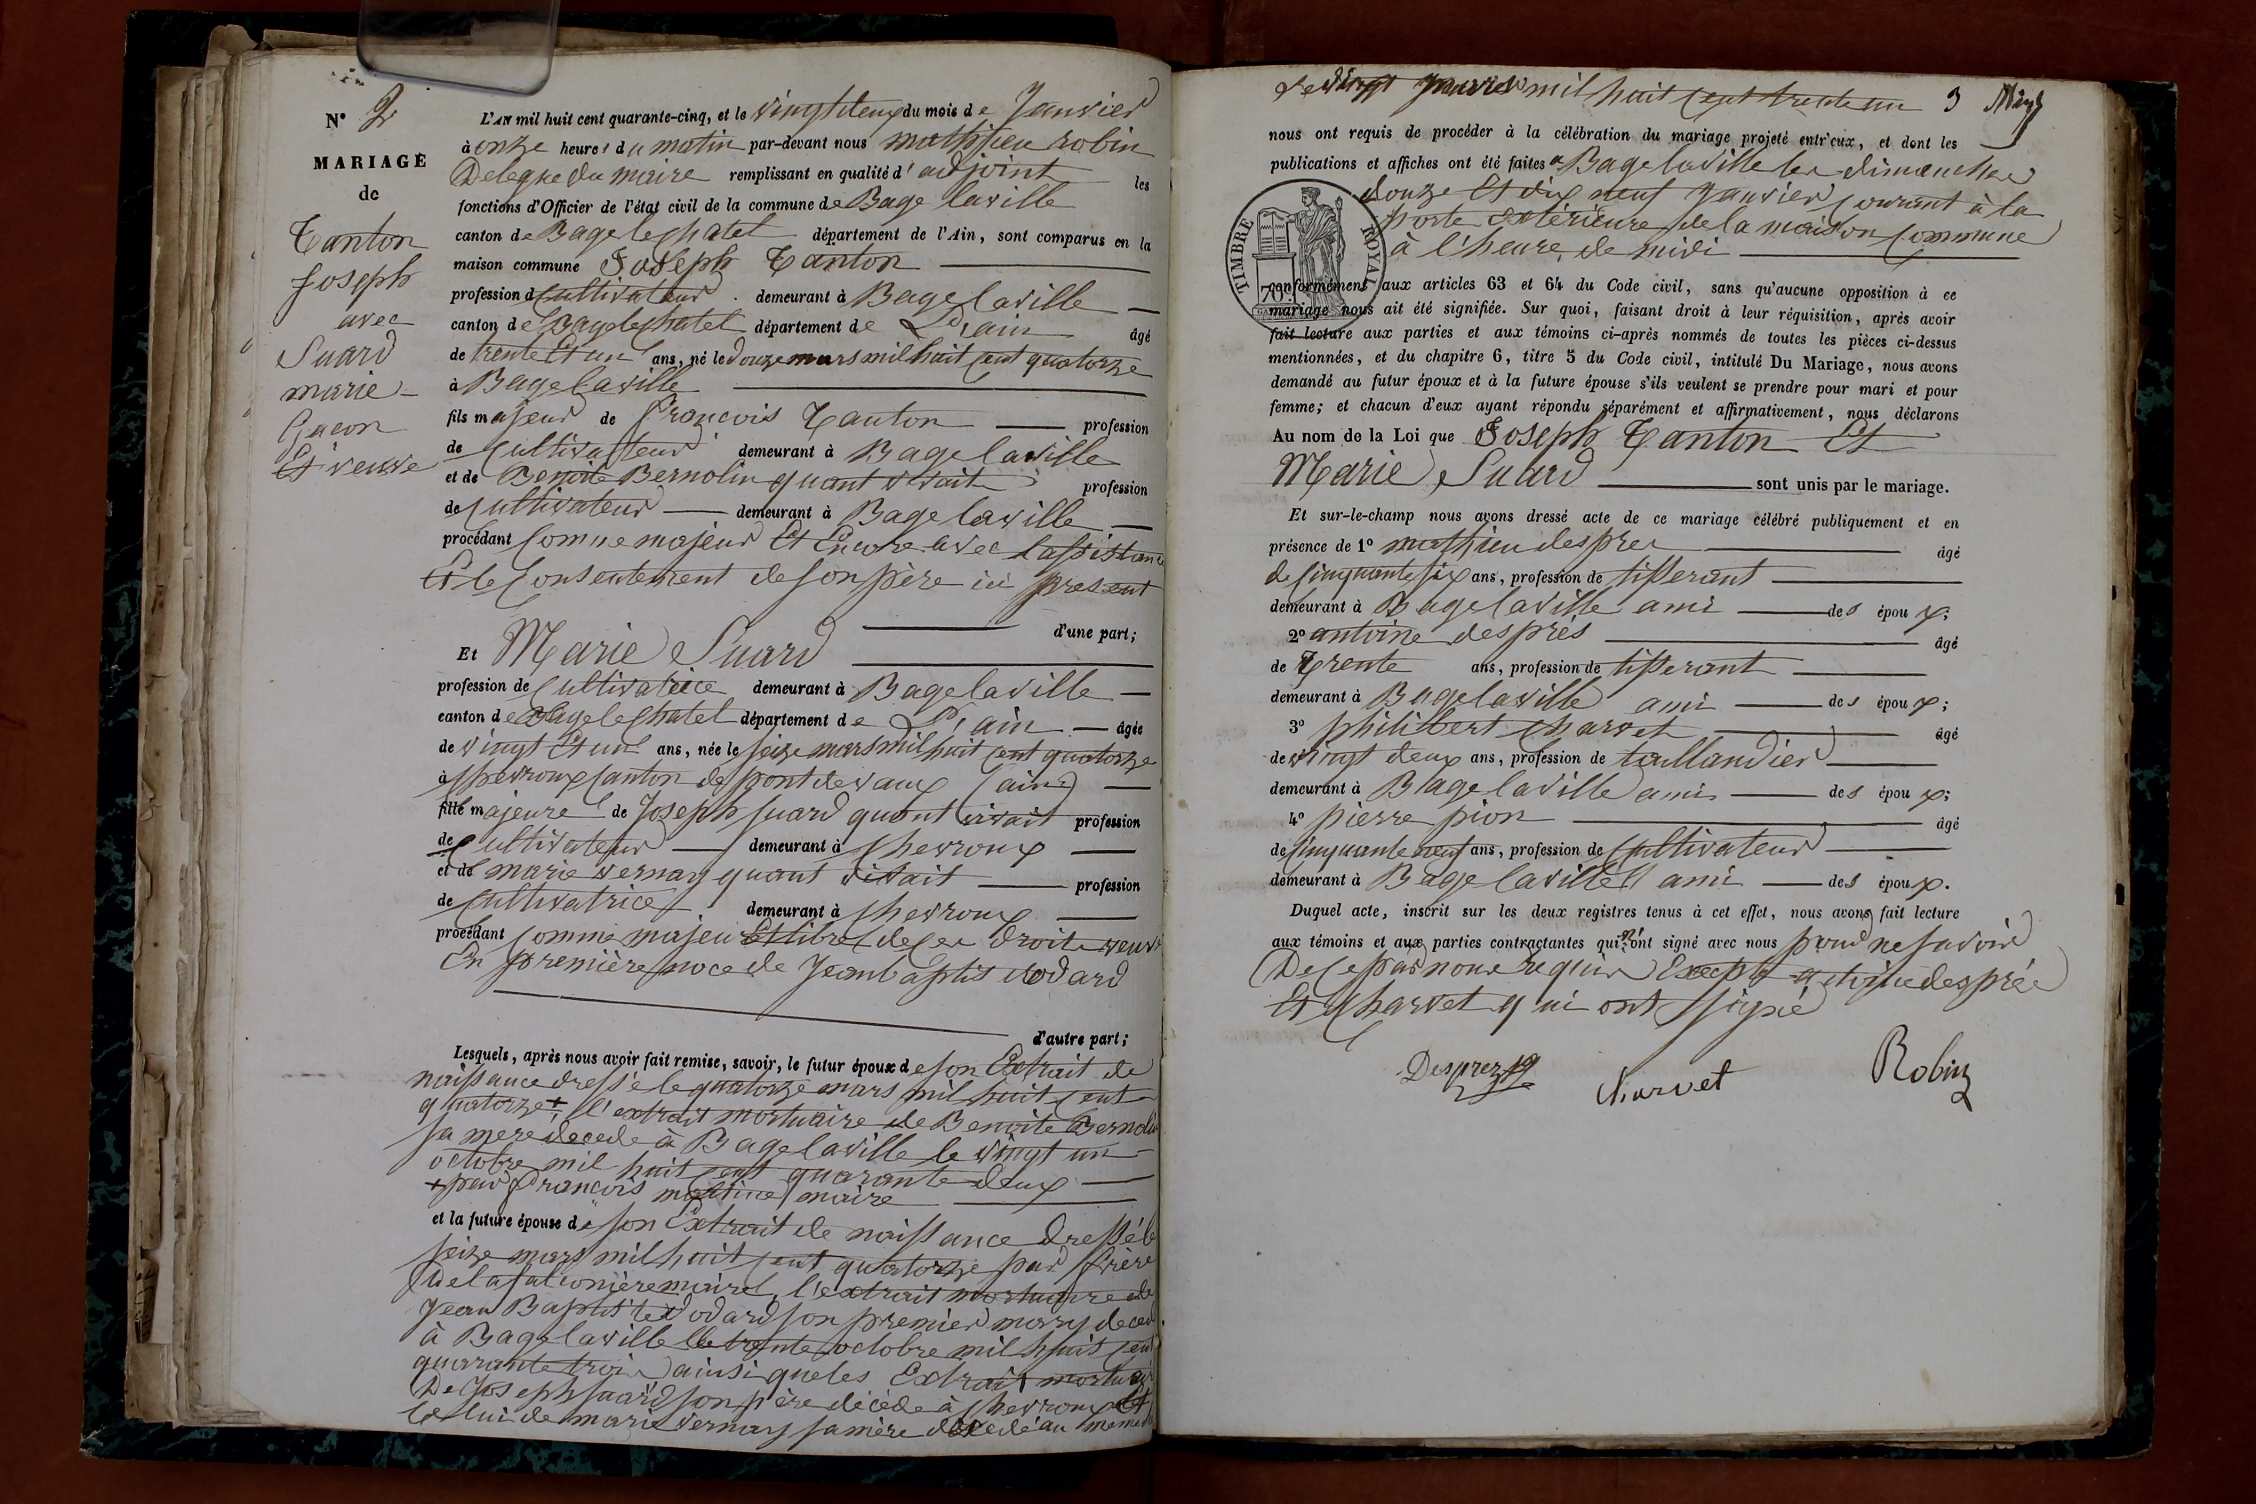 N° 2
MARIAGE
de
Tanton
Joseph
avec
Suard
marie
Et veuve
L'AN mil huit cent quarante-cinq, et le vingtdeux du mois de Janvier
à onze heures du matin par-devant nous mathieu robin
Delegue du maire remplissant en qualité d'adjoint les
fonctions d'Officier de l'état civil de la commune de Bage laville
canton de Bage le Chatel département de l'Ain, sont comparus en la
maison commune Joseph Tanton
profession de Cultivateur demeurant à Bage laville
canton de Bage le Chatel département de L'ain âgé
de trente Et un ans, né le Douze mars mil huit cent quatorze
à Bage laville
fils majeur de François Tanton profession
de Cultivateur demeurant à Bage laville
et de Benoite Bernolin quant vivait profession
de Cultivateur demeurant à Bage laville
procédant Comme majeur Et Encore avec lassistance
Et le Consentement de son père ici present
d'une part;
Et Marie Suard
profession de Cultivatrice demeurant à Bage laville
canton de Bage le Chatel département de L'ain âgée
de vingt Et un ans, née le seize mars mil huit cent quatorze
à Chevroux Canton de pont de vaux (ain)
fille majeure de Joseph Suard quant vivait profession
de Cultivateur demeurant à Chevroux
et de marie vernay quant vivait profession
de Cultivatrice demeurant à Chevroux
procédant Comme majeur Et libre de ces droits veuve
En première noce de Jean baptis dodard
d'autre part;
Lesquels, après nous avoir fait remise, savoir, le futur époux de son Extrait de
naissance dressé le quatorze mars mil huit cent
quatorze + l'extrait mortuaire de Benoite Bernolin
sa mere decede à Bage laville le vingt un
octobre mil huit cent quarante deux
+ par François maire
et la future épouse de son Extrait de naissance dressé le
seize mars mil huit cent quatorze par frère
Delafalconière maire, l'extrait mortuaire de
Jean Baptiste dodard son premier marry decede
à Bage laville le trente octobre mil huit cent
quarante trois ainsi que les Extrait mortuaire
De Joseph Suard son père décédé à Chevroux Et
Celui de marie vernay sa mère décédé au meme
Le vingt mars mil huit cent trente un 3
nous ont requis de procéder à la célébration du mariage projeté entr'eux, et dont les
publications et affiches ont été faites à Bage laville les dimanches
douze Et dix neuf Janvier Courant à la
porte extérieure de la maison Commune
à l'heure de midi
TIMBRE ROYAL
70 c
conformément aux articles 63 et 64 du Code civil, sans qu'aucune opposition à ce
mariage nous ait été signifiée. Sur quoi, faisant droit à leur réquisition, après avoir
fait lecture aux parties et aux témoins ci-après nommés de toutes les pièces ci-dessus
mentionnées, et du chapitre 6, titre 5 du Code civil, intitulé Du Mariage, nous avons
demandé au futur époux et à la future épouse s'ils veulent se prendre pour mari et pour
femme; et chacun d'eux ayant répondu séparément et affirmativement, nous déclarons
Au nom de la Loi que Joseph Tanton Et
Marie Suard sont unis par le mariage.
Et sur-le-champ nous avons dressé acte de ce mariage célébré publiquement et en
présence de 1° mathieu despres âgé
de Cinquante six ans, profession de tisserant
demeurant à Bage laville ami des époux;
2° antoine després âgé
de trente ans, profession de tisserant
demeurant à Bage laville ami des époux;
3° philibert Charvet âgé
de vingt deux ans, profession de taillandier
demeurant à Bage laville ami des époux;
4° pierre pion âgé
de Cinquante neuf ans, profession de Cultivateur
demeurant à Bage laville ami des époux.
Duquel acte, inscrit sur les deux registres tenus à cet effet, nous avons fait lecture
aux témoins et aux parties contractantes qui n'ont signé avec nous pour ne savoir
De Ce par nous requis Excepté antoine després
Et Charvet qui ont signé
Desprez
Charvet
Robin